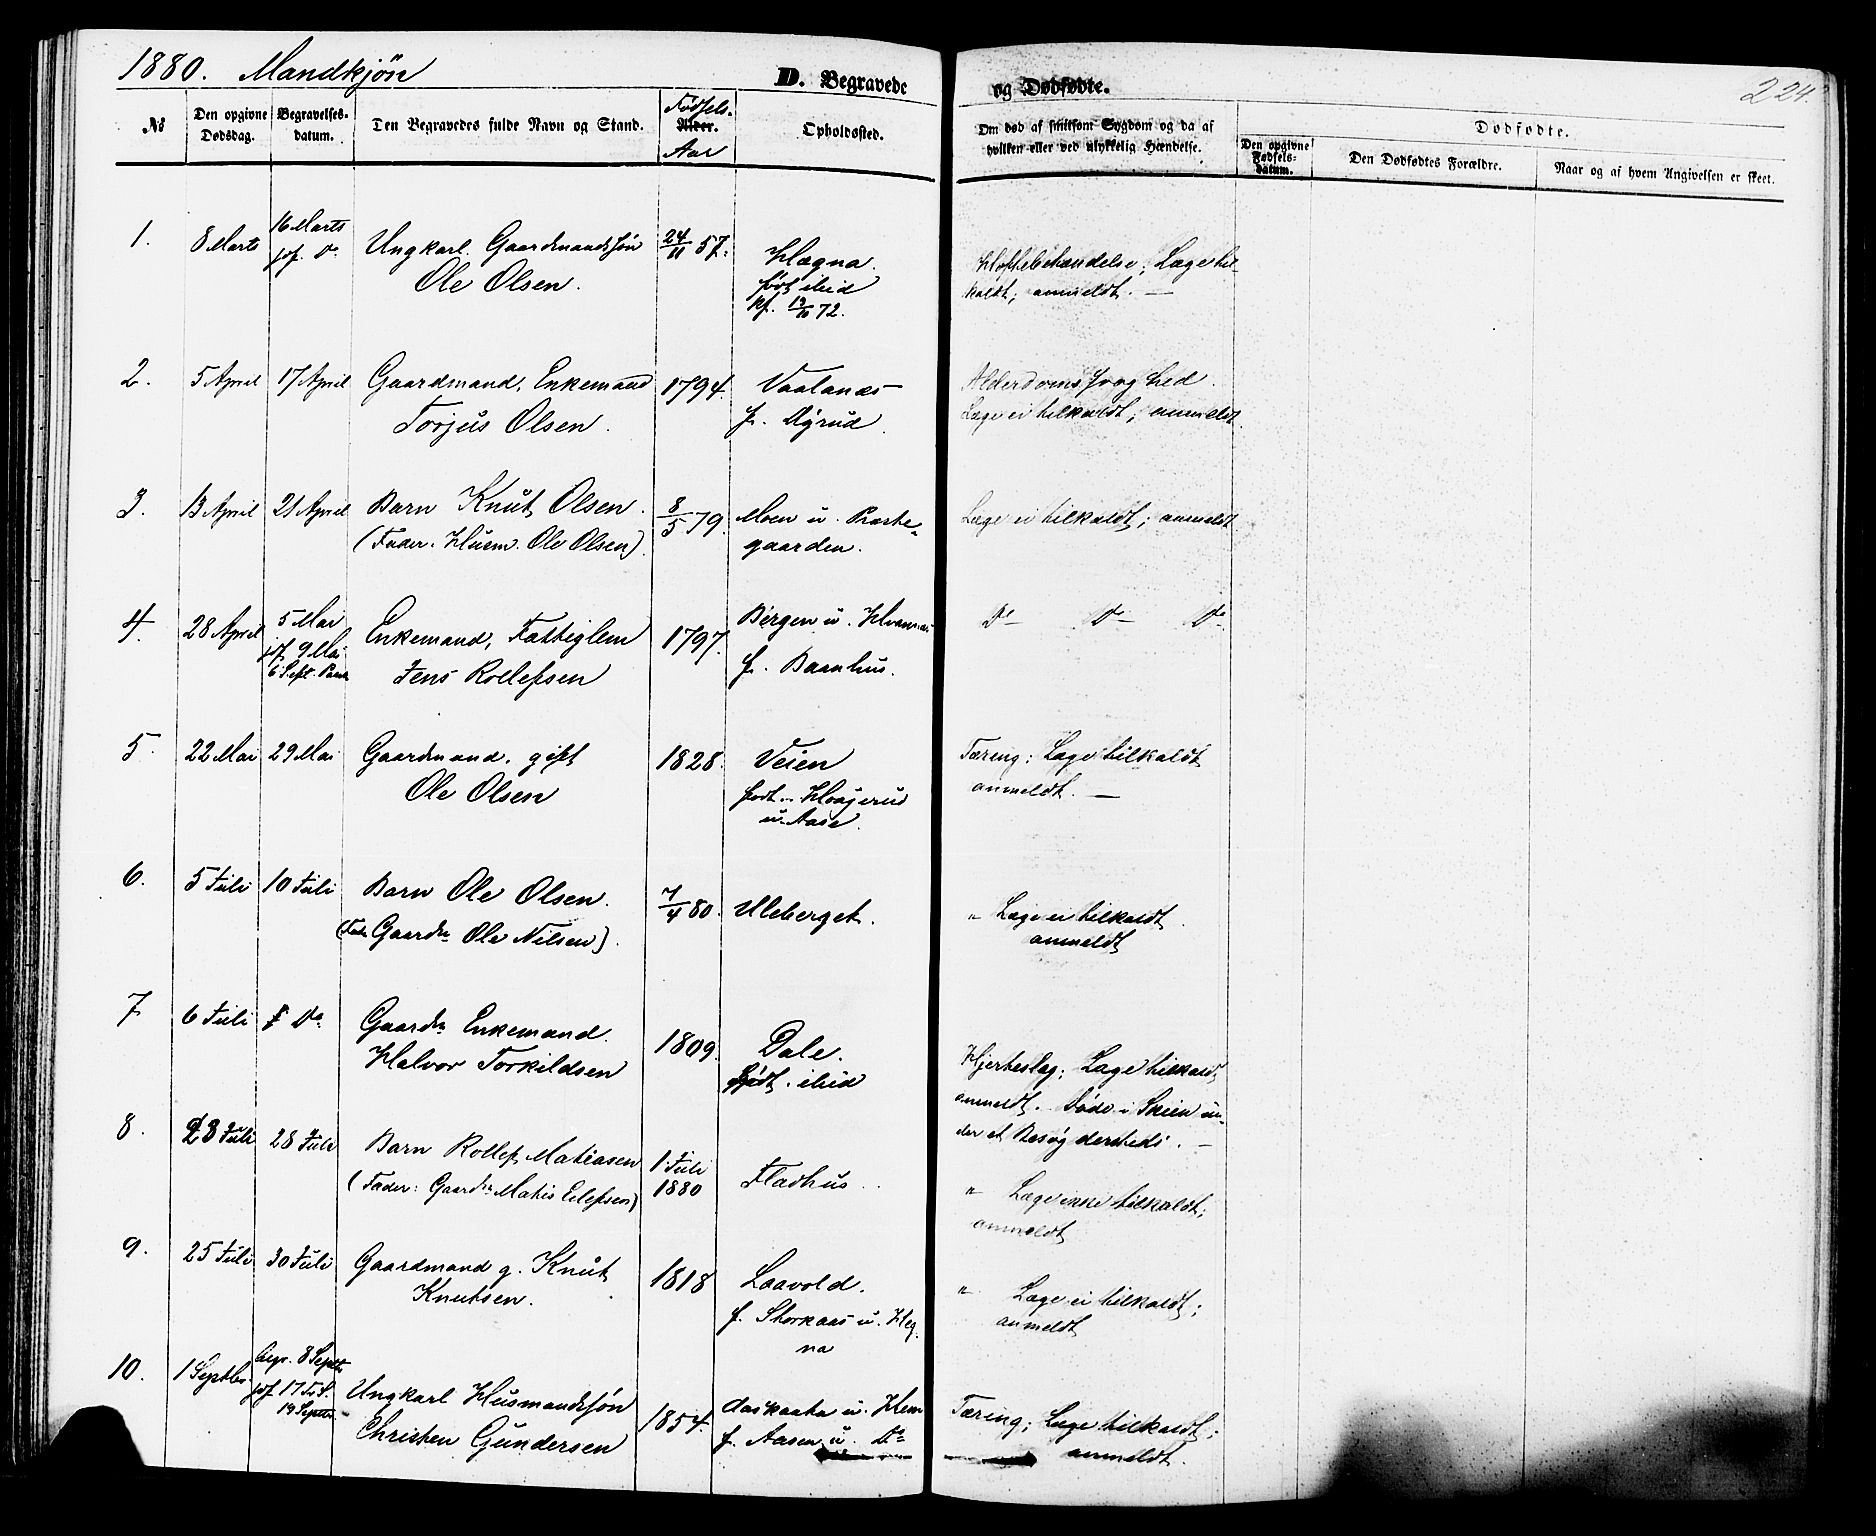 1880. Mandkjön
D. Begravede
og Dødfødte.
224.
No
Den opgivne Dødsdag.
Begravelses-datum.
Den Begravedes fulde Navn og Stand.
Fødsels-
Alder.
Aar
Opholdssted.
Om død af smitsom Sygdom og da af
hvilken eller ved ulykkelig Hændelse.
Dødfødte.
Den opgivne Fødsels-datum.
Den Dødfødtes Forældre.
Naar og af hvem Angivelsen er skeet.
1. 8 Marts 16 Marts Ungkarl. Gaardmandssøn 24/11 57. Hægna.
jof. Do Ole Olsen. født ibid
kf. 72.
Lægetil-
kaldt; anmeldt. —
2. 5 April 17 April Gaardmand, Enkemand 1794. Vaalanæs Alderdomssvaghed.
Torjus Olsen. f. Øyrud. Læge ei tilkaldt; anmeldt.
3. 13 April 21 April Barn Knut Olsen. 8/5 79. Moen u. Præste- Læge ei tilkaldt; anmeldt
(Fader. Husm. Ole Olsen). gaarden.
4. 28 April 5 Mai Enkemand, Fattiglem 1797. Bergen u. Do Do Do
jof. 9 Mai Jens Rollefsen f. Baanhus.
5. 22 Mai 29 Mai Gaardmand, gift 1828. Veien Tæring; Læge tilkaldt
Ole Olsen født anmeldt. —
u. Aase.
6. 5 Juli 10 Juli Barn Ole Olsen. 7/4 80. Uleberget. " Læge ei tilkaldt.
(Fader Gaardm. Ole Nilsen). anmeldt
7 6 Juli Do Gaardm. Enkemand. 1809. Dale. Hjerteslag; Læge tilkaldt
Halvor Torkildsen født ibid anmeldt. Døde i Skien un-
der et Besøg dersteds. —
8. 23 Juli 28 Juli Barn Rollef Matiasen 1 Juli Fladhus. " Læge ikke tilkaldt;
(Fader: Gaardm. Matis Eilefsen) 1880 anmeldt
9. 25 Juli 30 Juli Gaardmand g. Knut 1818 Laavold. " Læge ei tilkaldt;
Knutsen. f. Storkaas u. Heg- anmeldt
na
10. 1 Septbr. begr. 8 Septbr Ungkarl Husmandssøn 1854. u. Hem Tæring; Læge tilkaldt;
jof. 17 Chresten Gundersen f. Aasen u. Do anmeldt.
19 Septbr